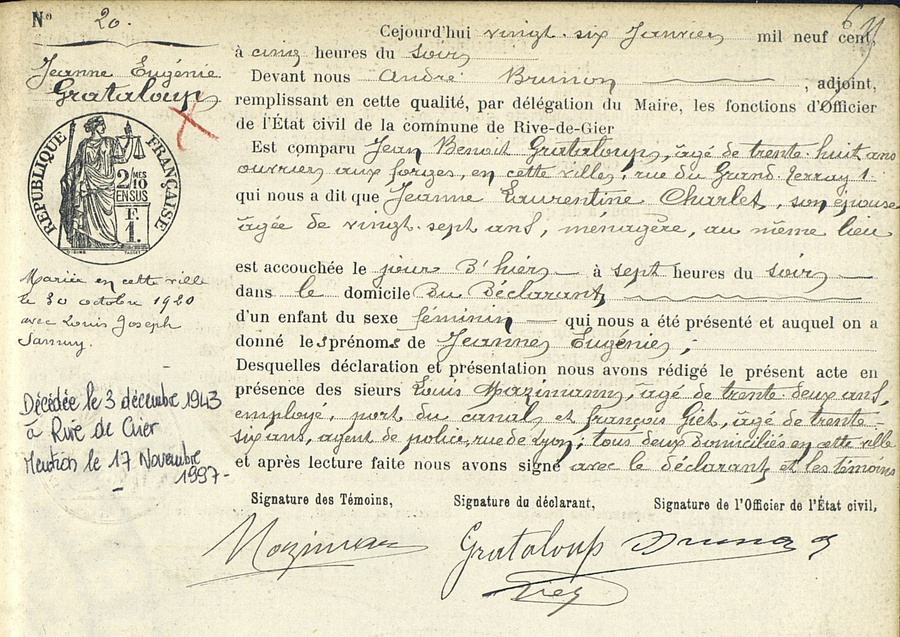 N° 20.
Jeanne Eugénie
Grataloup
RÉPUBLIQUE FRANÇAISE
2 MES 10
EN SUS
F.
1.
Mariée en cette ville
le 30 octobre 1920
avec Louis Joseph
Décédée le 3 décembre 1943
à Rive de Gier
Mention le 17 Novembre
1997-
Cejourd'hui vingt-six Janvier mil neuf cent
à cinq heures du soir
Devant nous André Brunon, adjoint,
remplissant en cette qualité, par délégation du Maire, les fonctions d'Officier
de l'État civil de la commune de Rive-de-Gier
Est comparu Jean Benoit Grataloup, âgé de trente-huit ans
ouvrier aux forges, en cette ville, rue du Grand 1.
qui nous a dit que Jeanne Laurentine Charlet, son épouse
âgée de vingt-sept ans, ménagère, au même lieu
est accouchée le jour d'hier à sept heures du soir
dans le domicile du déclarant
d'un enfant du sexe féminin qui nous a été présenté et auquel on a
donné les prénoms de Jeanne Eugénie;
Desquelles déclaration et présentation nous avons rédigé le présent acte en
présence des sieurs Louis Mazimann, âgé de trente-deux ans,
employé, port du canal et françois Giet, âgé de trente-
six ans, agent de police, rue de Lyon; tous deux domiciliés en cette ville
et après lecture faite nous avons signé avec le déclarant et les témoins
Signature des Témoins, Signature du déclarant, Signature de l'Officier de l'État civil,
Mazimann Grataloup Brunon
Giet